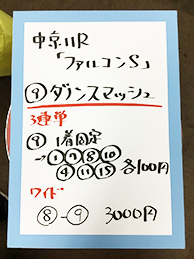 中京11R
「ファルコンS」
⑨ダンスマッシュ
3連単
⑨1着固定
→①⑦⑧⑩
④⑪⑮各100円
ワイド
⑧-⑨ 3000円